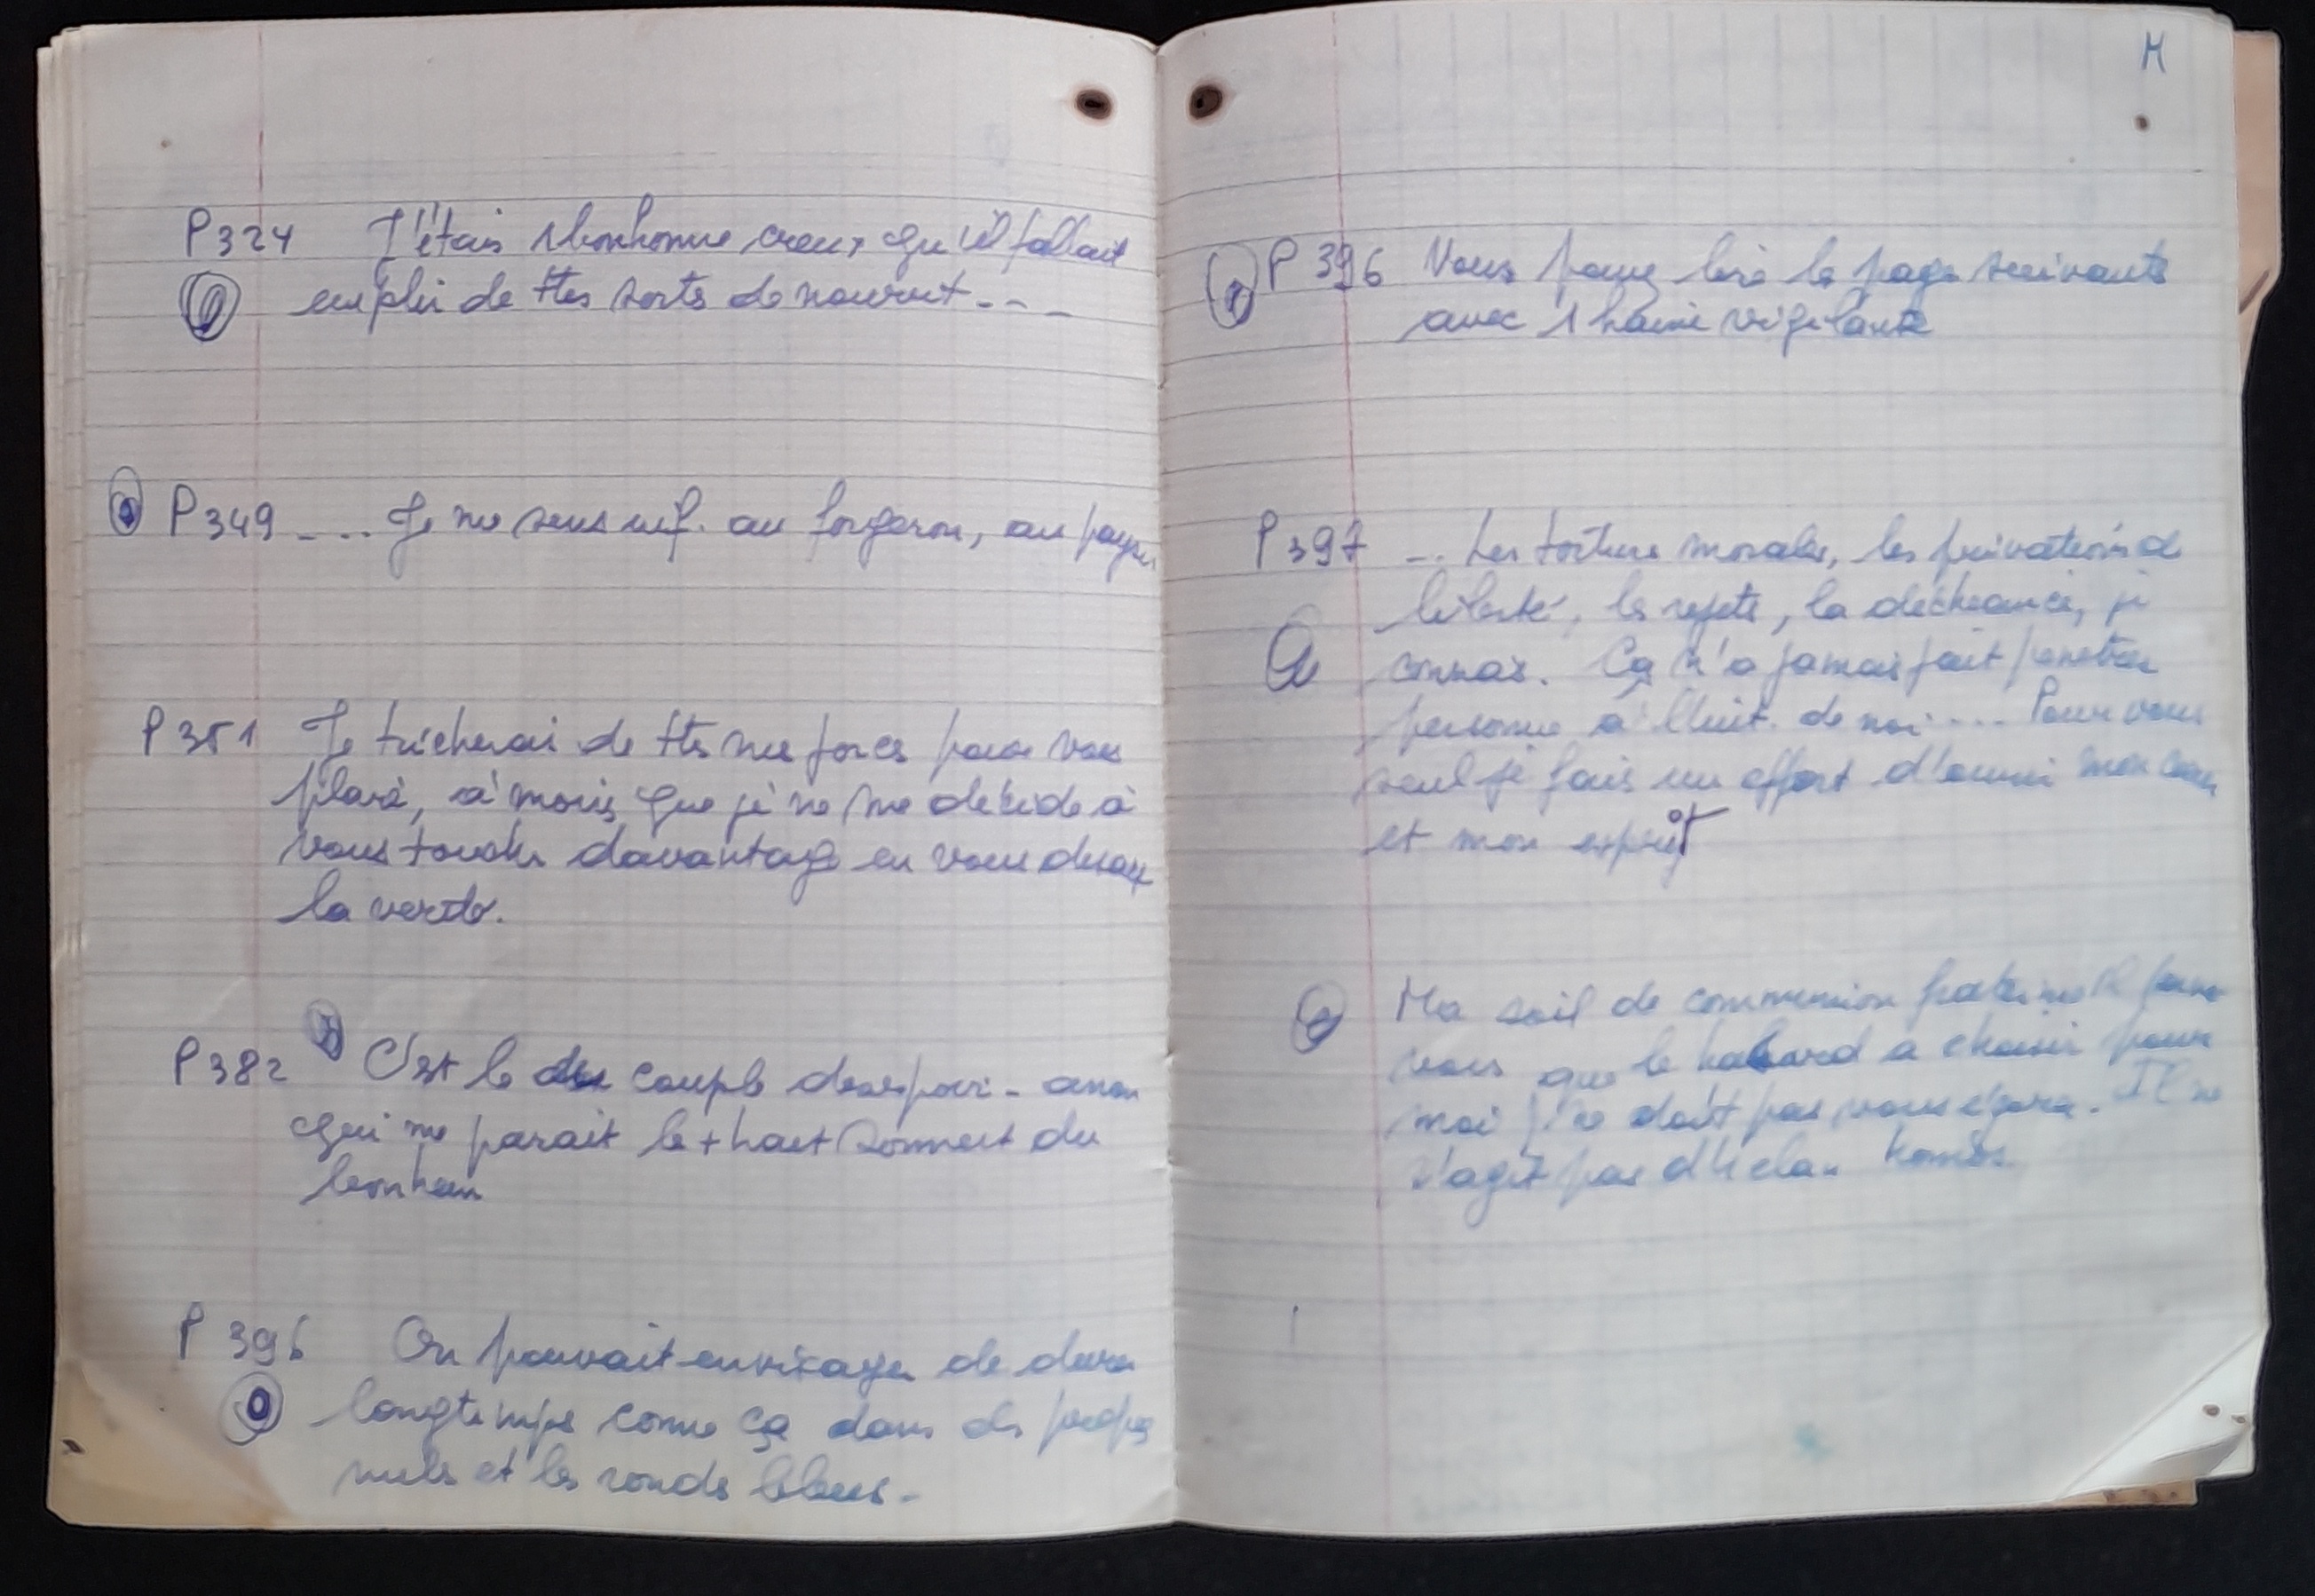 P324 J'étais 1 bonhomme creux qu'il fallait
emplir de ttes sorts de nourrit---
P349 .... Je me sens inf. au forgeron, au paysan
P351 Je tricherais de ttes mes forces pour vous
plaire, à moins que je ne me décide à
vous toucher davantage en vous disant
la verité.
P382 C'est le couple desespoir - amour
qui me parait le + haut sommet du
bonheur
P 396 On pouvait envisager de durer
longtemps comme ça dans des
et les ronds bleus.
M
P 396 Vous pouvez lire la page suivante
avec 1 haine vigilante
P 397 ... Les tortures morales, les privations de
liberté, les rejets, la déchéance, je
connais. Ça n'a jamais fait penetrer
personne à l'Int. de moi .... Pour vous
seul je fais un effort d'ouvrir mon cœur
et mon esprit
Ma soif de communion fraternelle pour
vous que le hasard a choisi pour
moi ne doit pas vous égarer. Il ne
s'agit pas d'1 elan